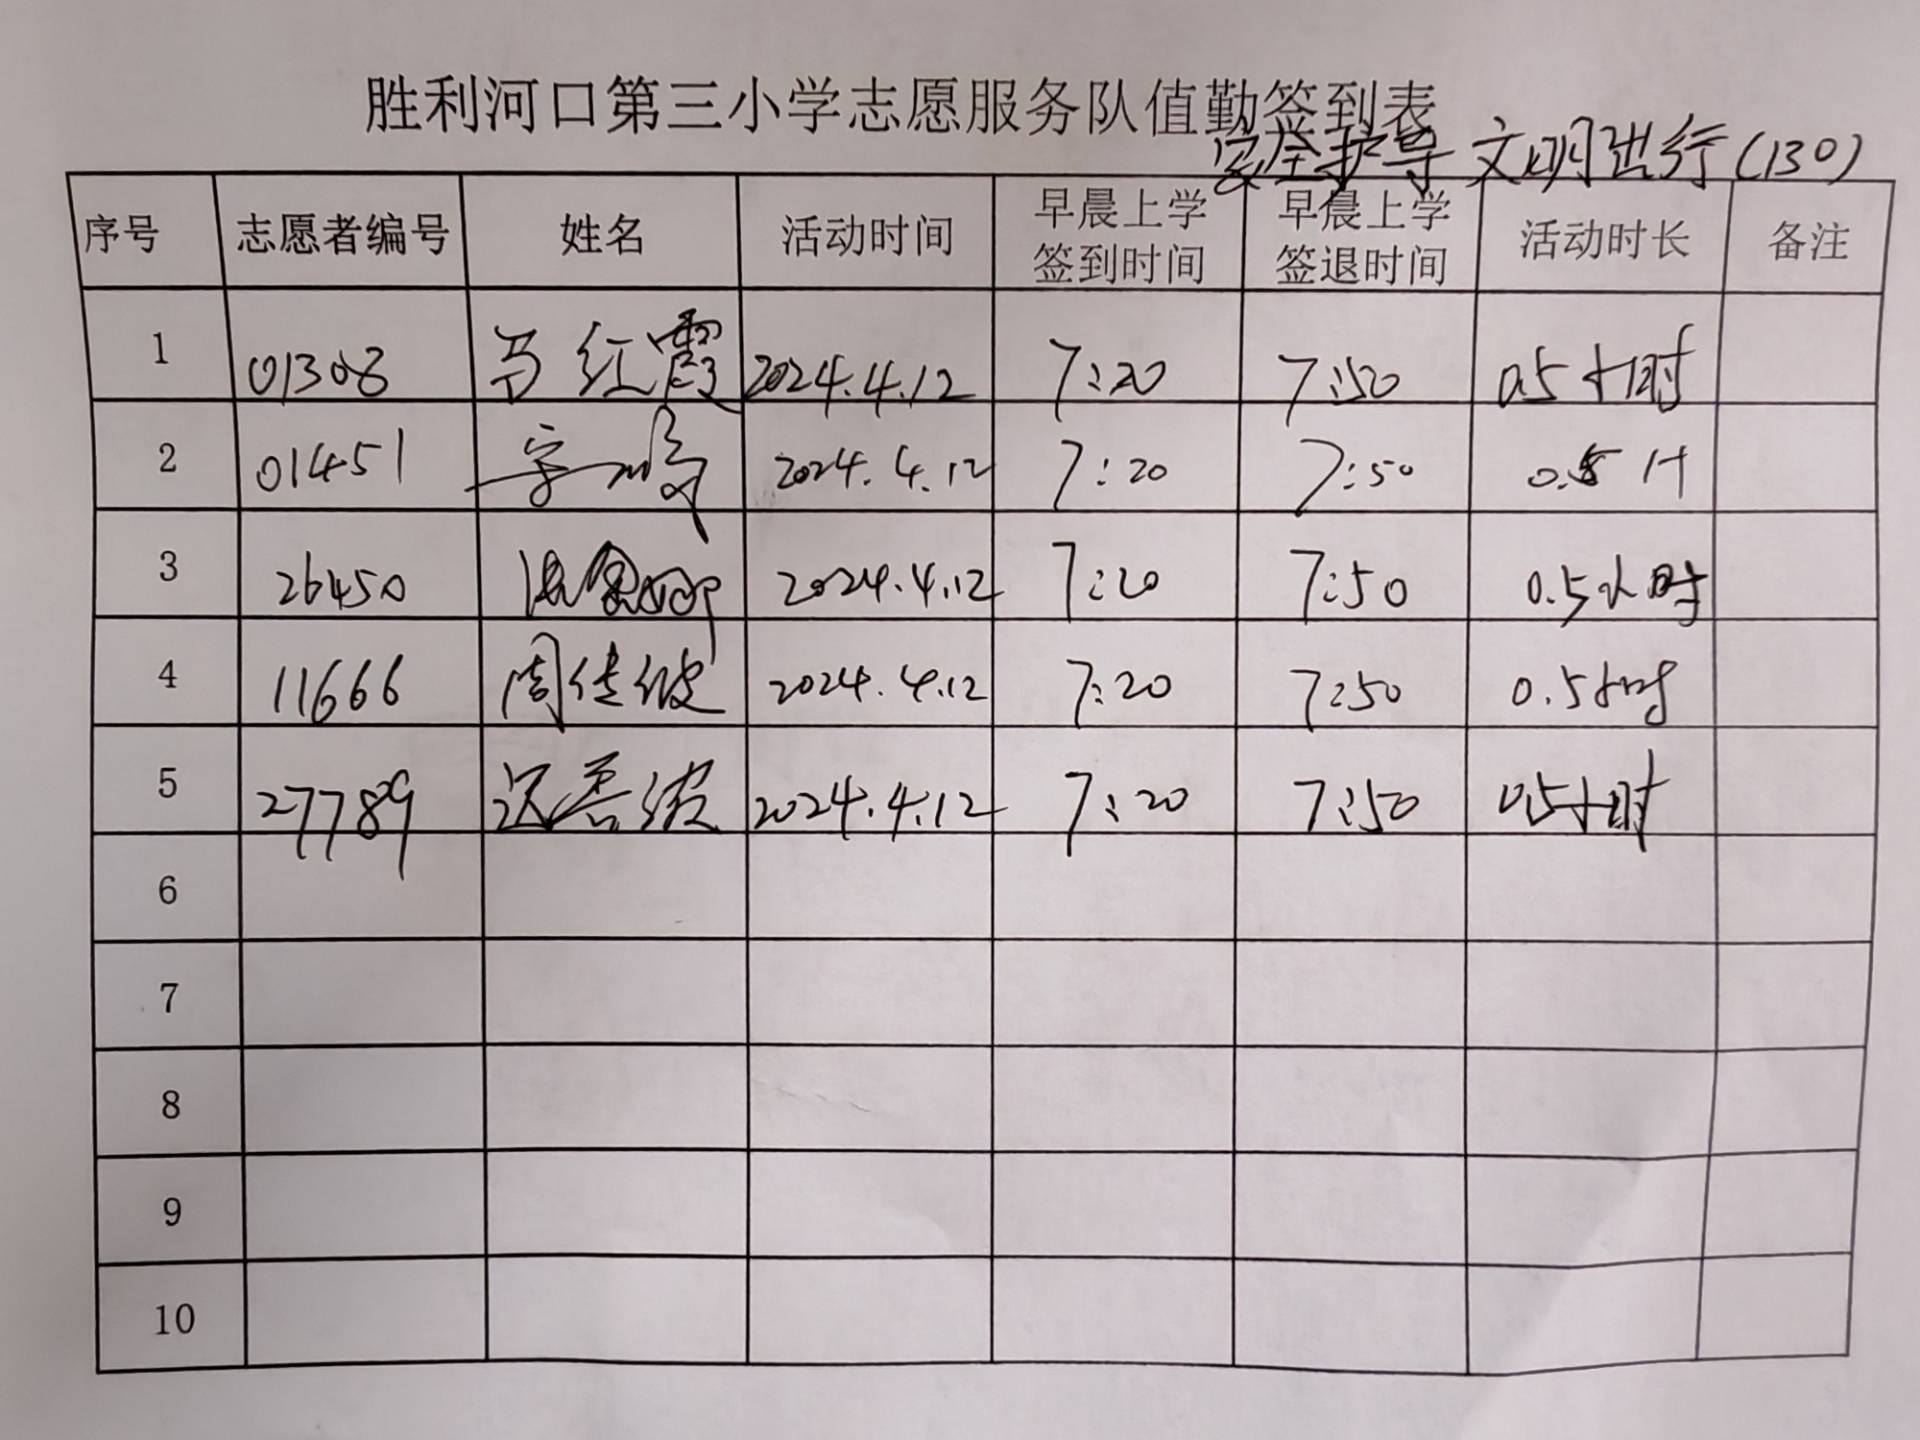 胜利河口第三小学志愿服务队值勤签到表
安全护导 文明出行(130)
序号 志愿者编号 姓名 活动时间 早晨上学签到时间 早晨上学签退时间 活动时长 备注
1 01308 马红霞 2024.4.12 7:20 7:50 0.5小时
2 01451 2024.4.12 7:20 7:50 0.5 H
3 26450 2024.4.12 7:20 7:50 0.5小时
4 11666 周传 2024.4.12 7:20 7:50 0.5小时
5 27789 2024.4.12 7:20 7:50 0.5小时
6
7
8
9
10